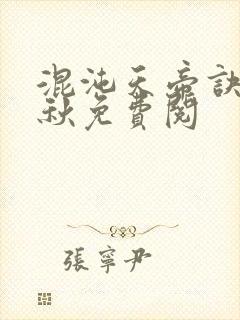 混沌天帝訣
秋免費閱
張寧尹